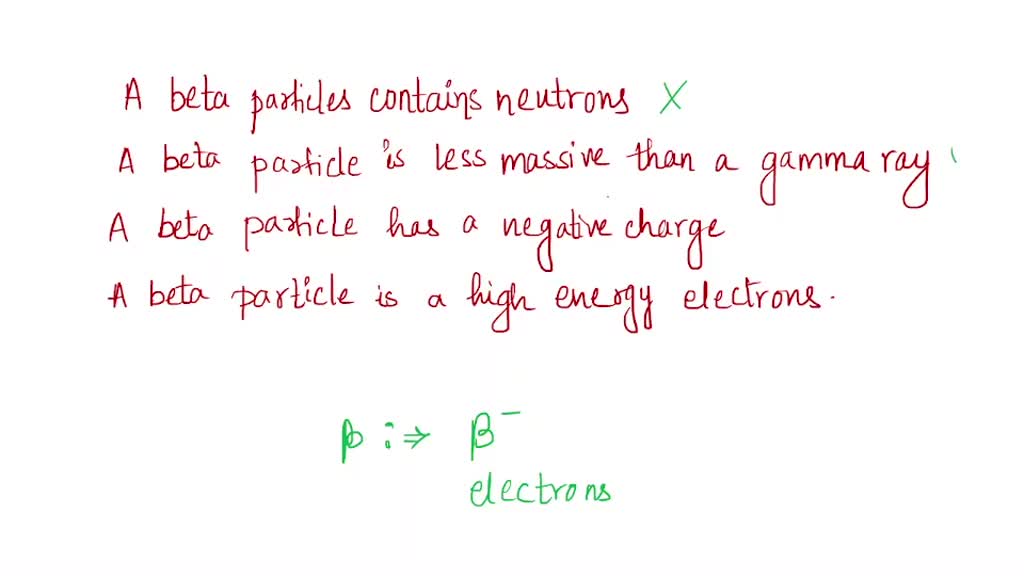 A beta particles contains neutrons X
A beta particle is less massive than a gamma ray
A beta particle has a negative charge
A beta particle is a high energy electrons.
β :⇒ β⁻
electrons